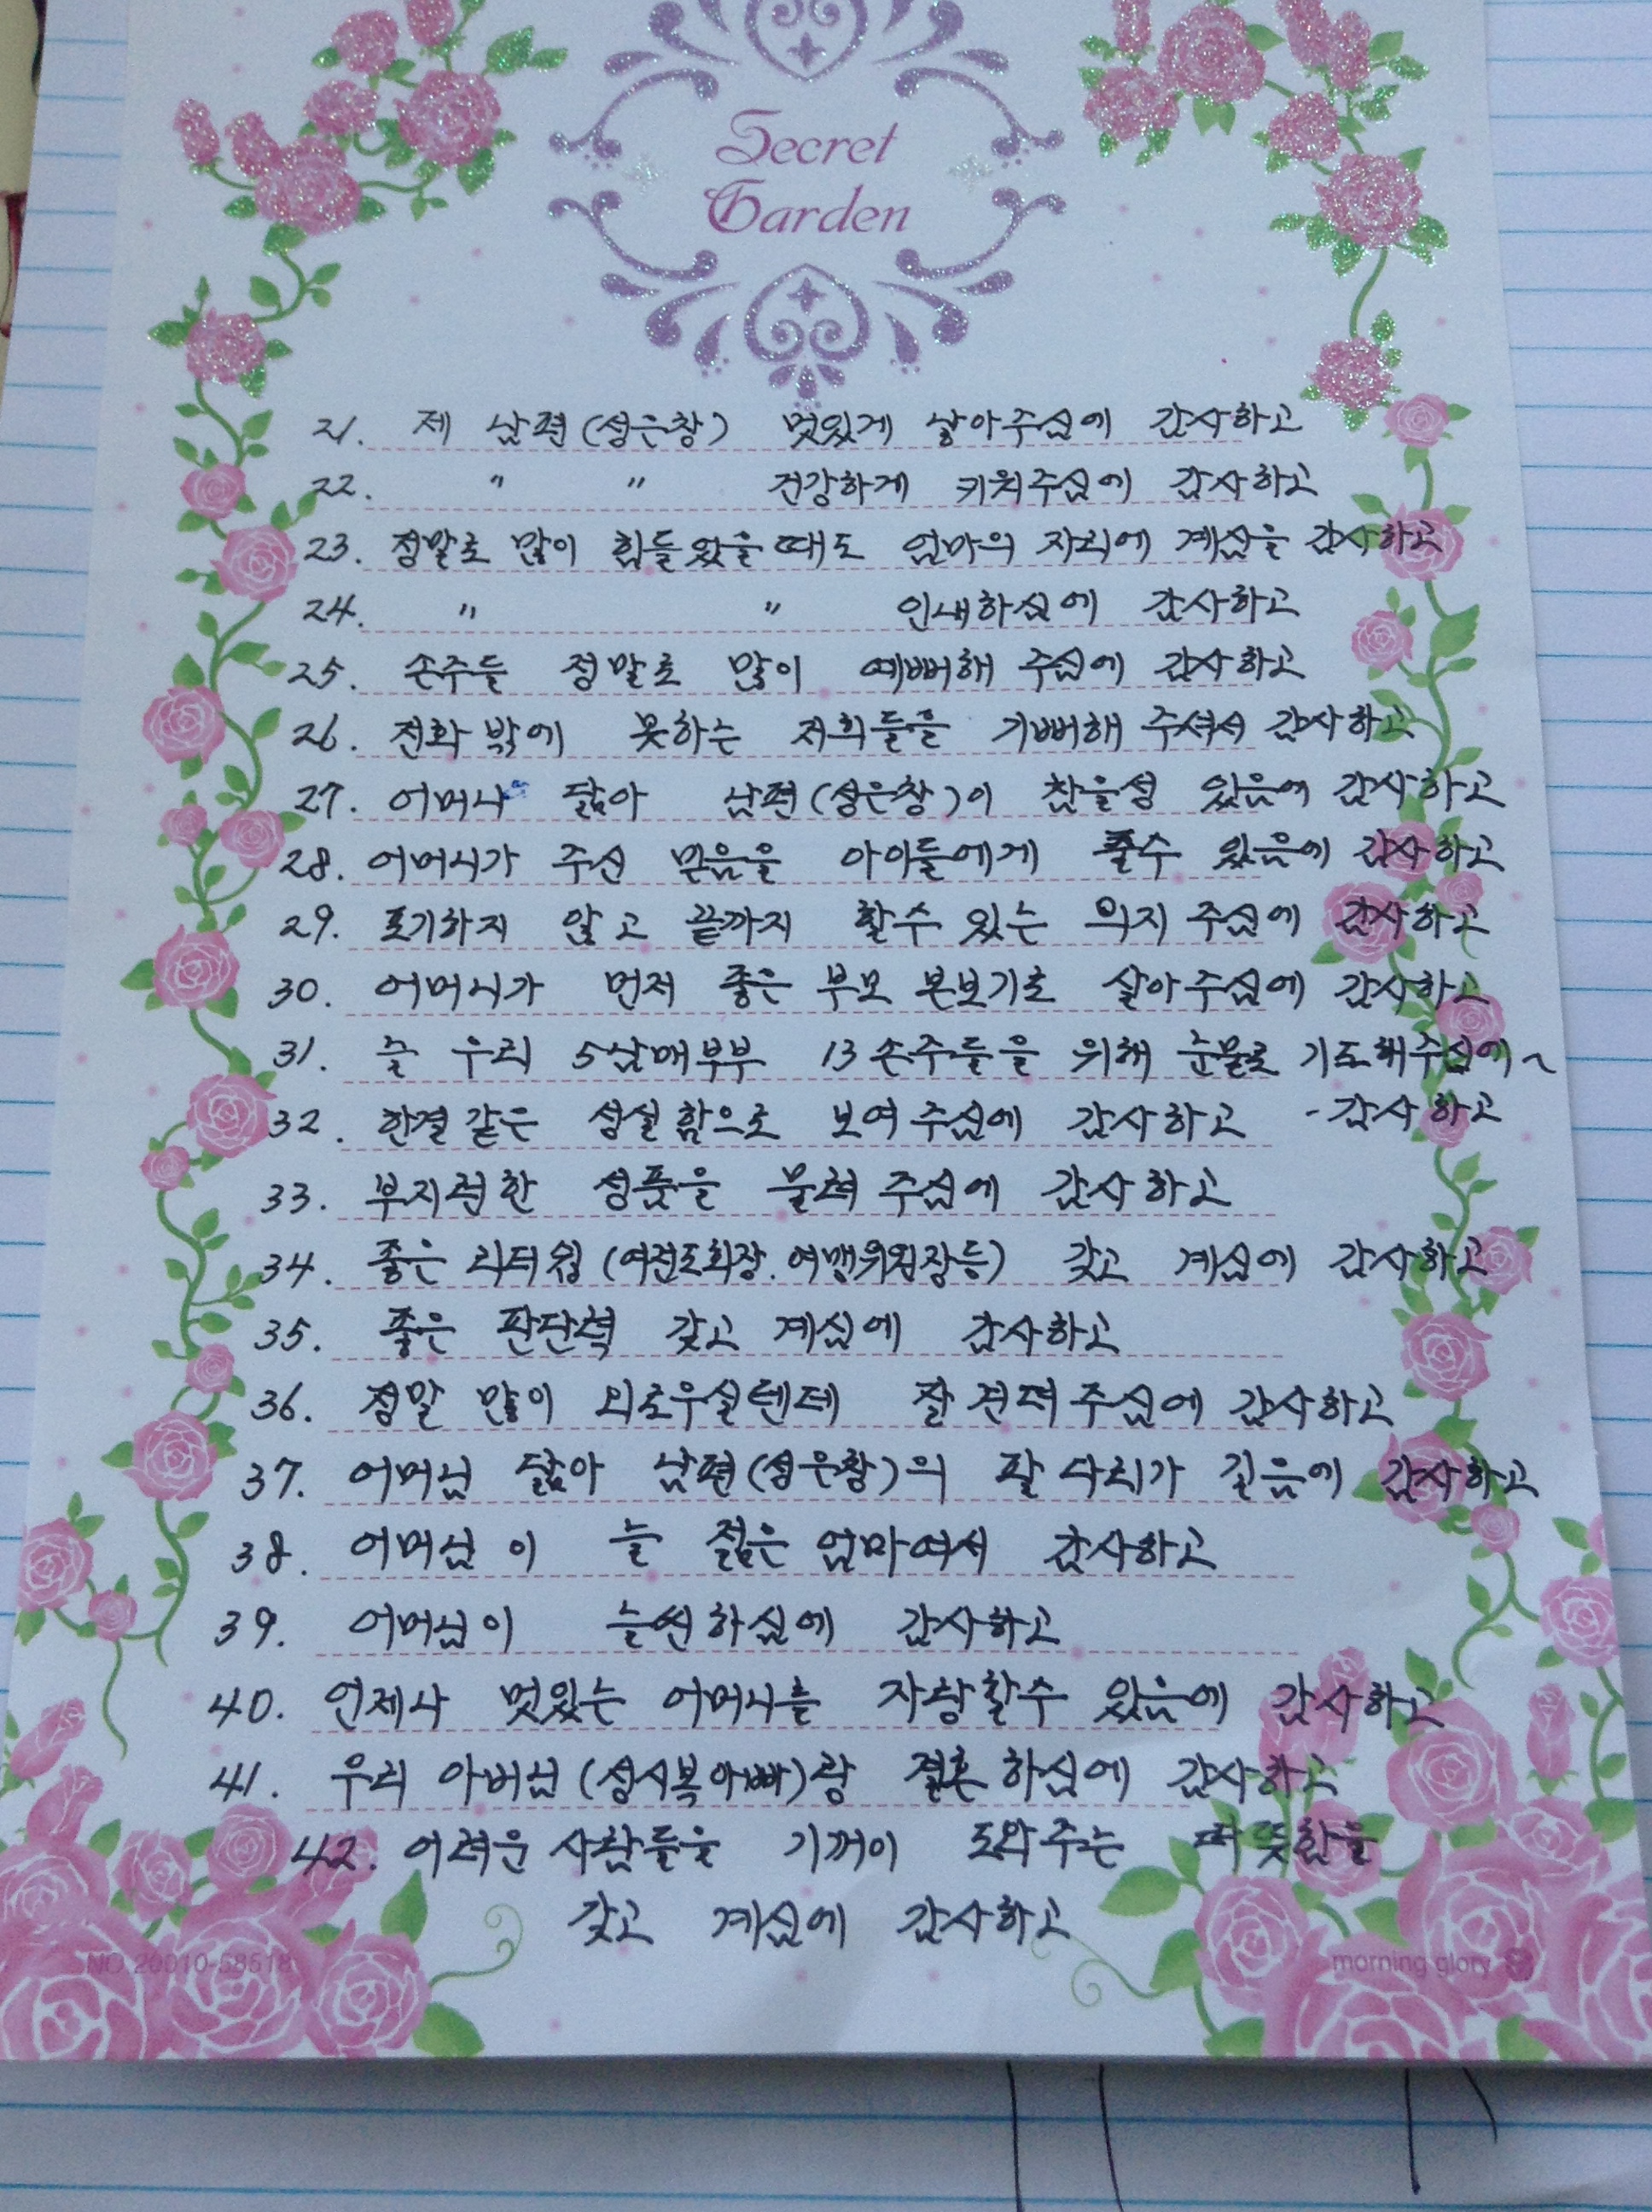 Secret
Garden
21. 제 남편(성은창) 멋있게 낳아주심에 감사하고
22. " " 건강하게 키워주심에 감사하고
23. 정말로 많이 힘들었을 때도 엄마의 자리에 계심을 감사하고
24. " " 인내하심에 감사하고
25. 손주들 정말로 많이 예뻐해 주심에 감사하고
26. 전화 밖에 못하는 저희들을 기뻐해 주셔서 감사하고
27. 어머나 닮아 남편(성은창)이 참을성 있음에 감사하고
28. 어머니가 주신 믿음을 아이들에게 줄수 있음에 감사하고
29. 포기하지 않고 끝까지 할수 있는 의지 주심에 감사하고
30. 어머니가 먼저 좋은 부모 본보기로 살아주심에 감사하고
31. 늘 우리 5남매부부 13손주들을 위해 눈물로 기도해주심에~
- 감사하고
32. 한결같은 성실함으로 보여주심에 감사하고
33. 부지런한 성품을 물려 주심에 감사하고
34. 좋은 리더쉽 (여전도회장. 여맹위원장등) 갖고 계심에 감사하고
35. 좋은 판단력 갖고 계심에 감사하고
36. 정말 많이 외로우실텐데 잘 견뎌주심에 감사하고
37. 어머님 닮아 남편(성은창)의 팔 다리가 긺음에 감사하고
38. 어머님이 늘 젊은 엄마여서 감사하고
39. 어머님이 늘씬하심에 감사하고
40. 언제나 멋있는 어머니를 자랑할수 있음에 감사하고
41. 우리 아버님(성시복아빠)랑 결혼하심에 감사하고
42. 어려운 사람들을 기꺼이 도와주는 따뜻함을
갖고 계심에 감사하고
morning glory